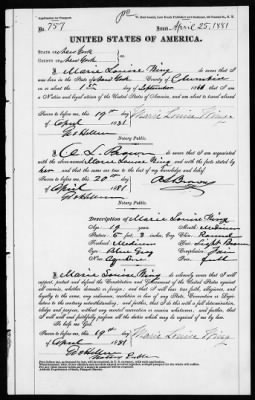 No. 757
Issued April 25, 1881
UNITED STATES OF AMERICA.
STATE OF New York
COUNTY OF New York
I Marie Louise Wing do swear that I
was born in the State of New York, County of Columbia
on or about the 1st day of September 1861 that I am a
Native and loyal citizen of the United States of America, and am about to travel
abroad.
Sworn to before me, this 19th day
of April 1881
Marie Louise Wing
Notary Public.
I, A. L. Brown do swear that I am acquainted with
the above-named Marie Louise Wing and with the facts stated by
her and that the same are true to the best of my knowledge and belief.
Sworn to before me, this 20th day
of April 1881
A. L. Brown
Notary Public.
Description of Marie Louise Wing
Age 19 years
Mouth Medium
Stature 5 feet 3 inches, Eng.
Chin Round
Forehead Medium
Hair Light Brown
Eyes Blue Gray
Complexion Fair
Nose
Face full
I Marie Louise Wing do solemnly swear that I will
support, protect and defend the Constitution and Government of the United States against
all enemies, whether domestic or foreign; and that I will bear true faith, allegiance, and
loyalty to the same, any ordinance, resolution or law of any State, Convention or Legislature
to the contrary notwithstanding; and further, that I do this with a full determination,
pledge, and purpose, without any mental reservation or evasion whatsoever; and further,
that I will well and faithfully perform all the duties which may be required of me by law.
So help me God.
Sworn to before me, this 19th day
of April 1881
Marie Louise Wing
Notary Public